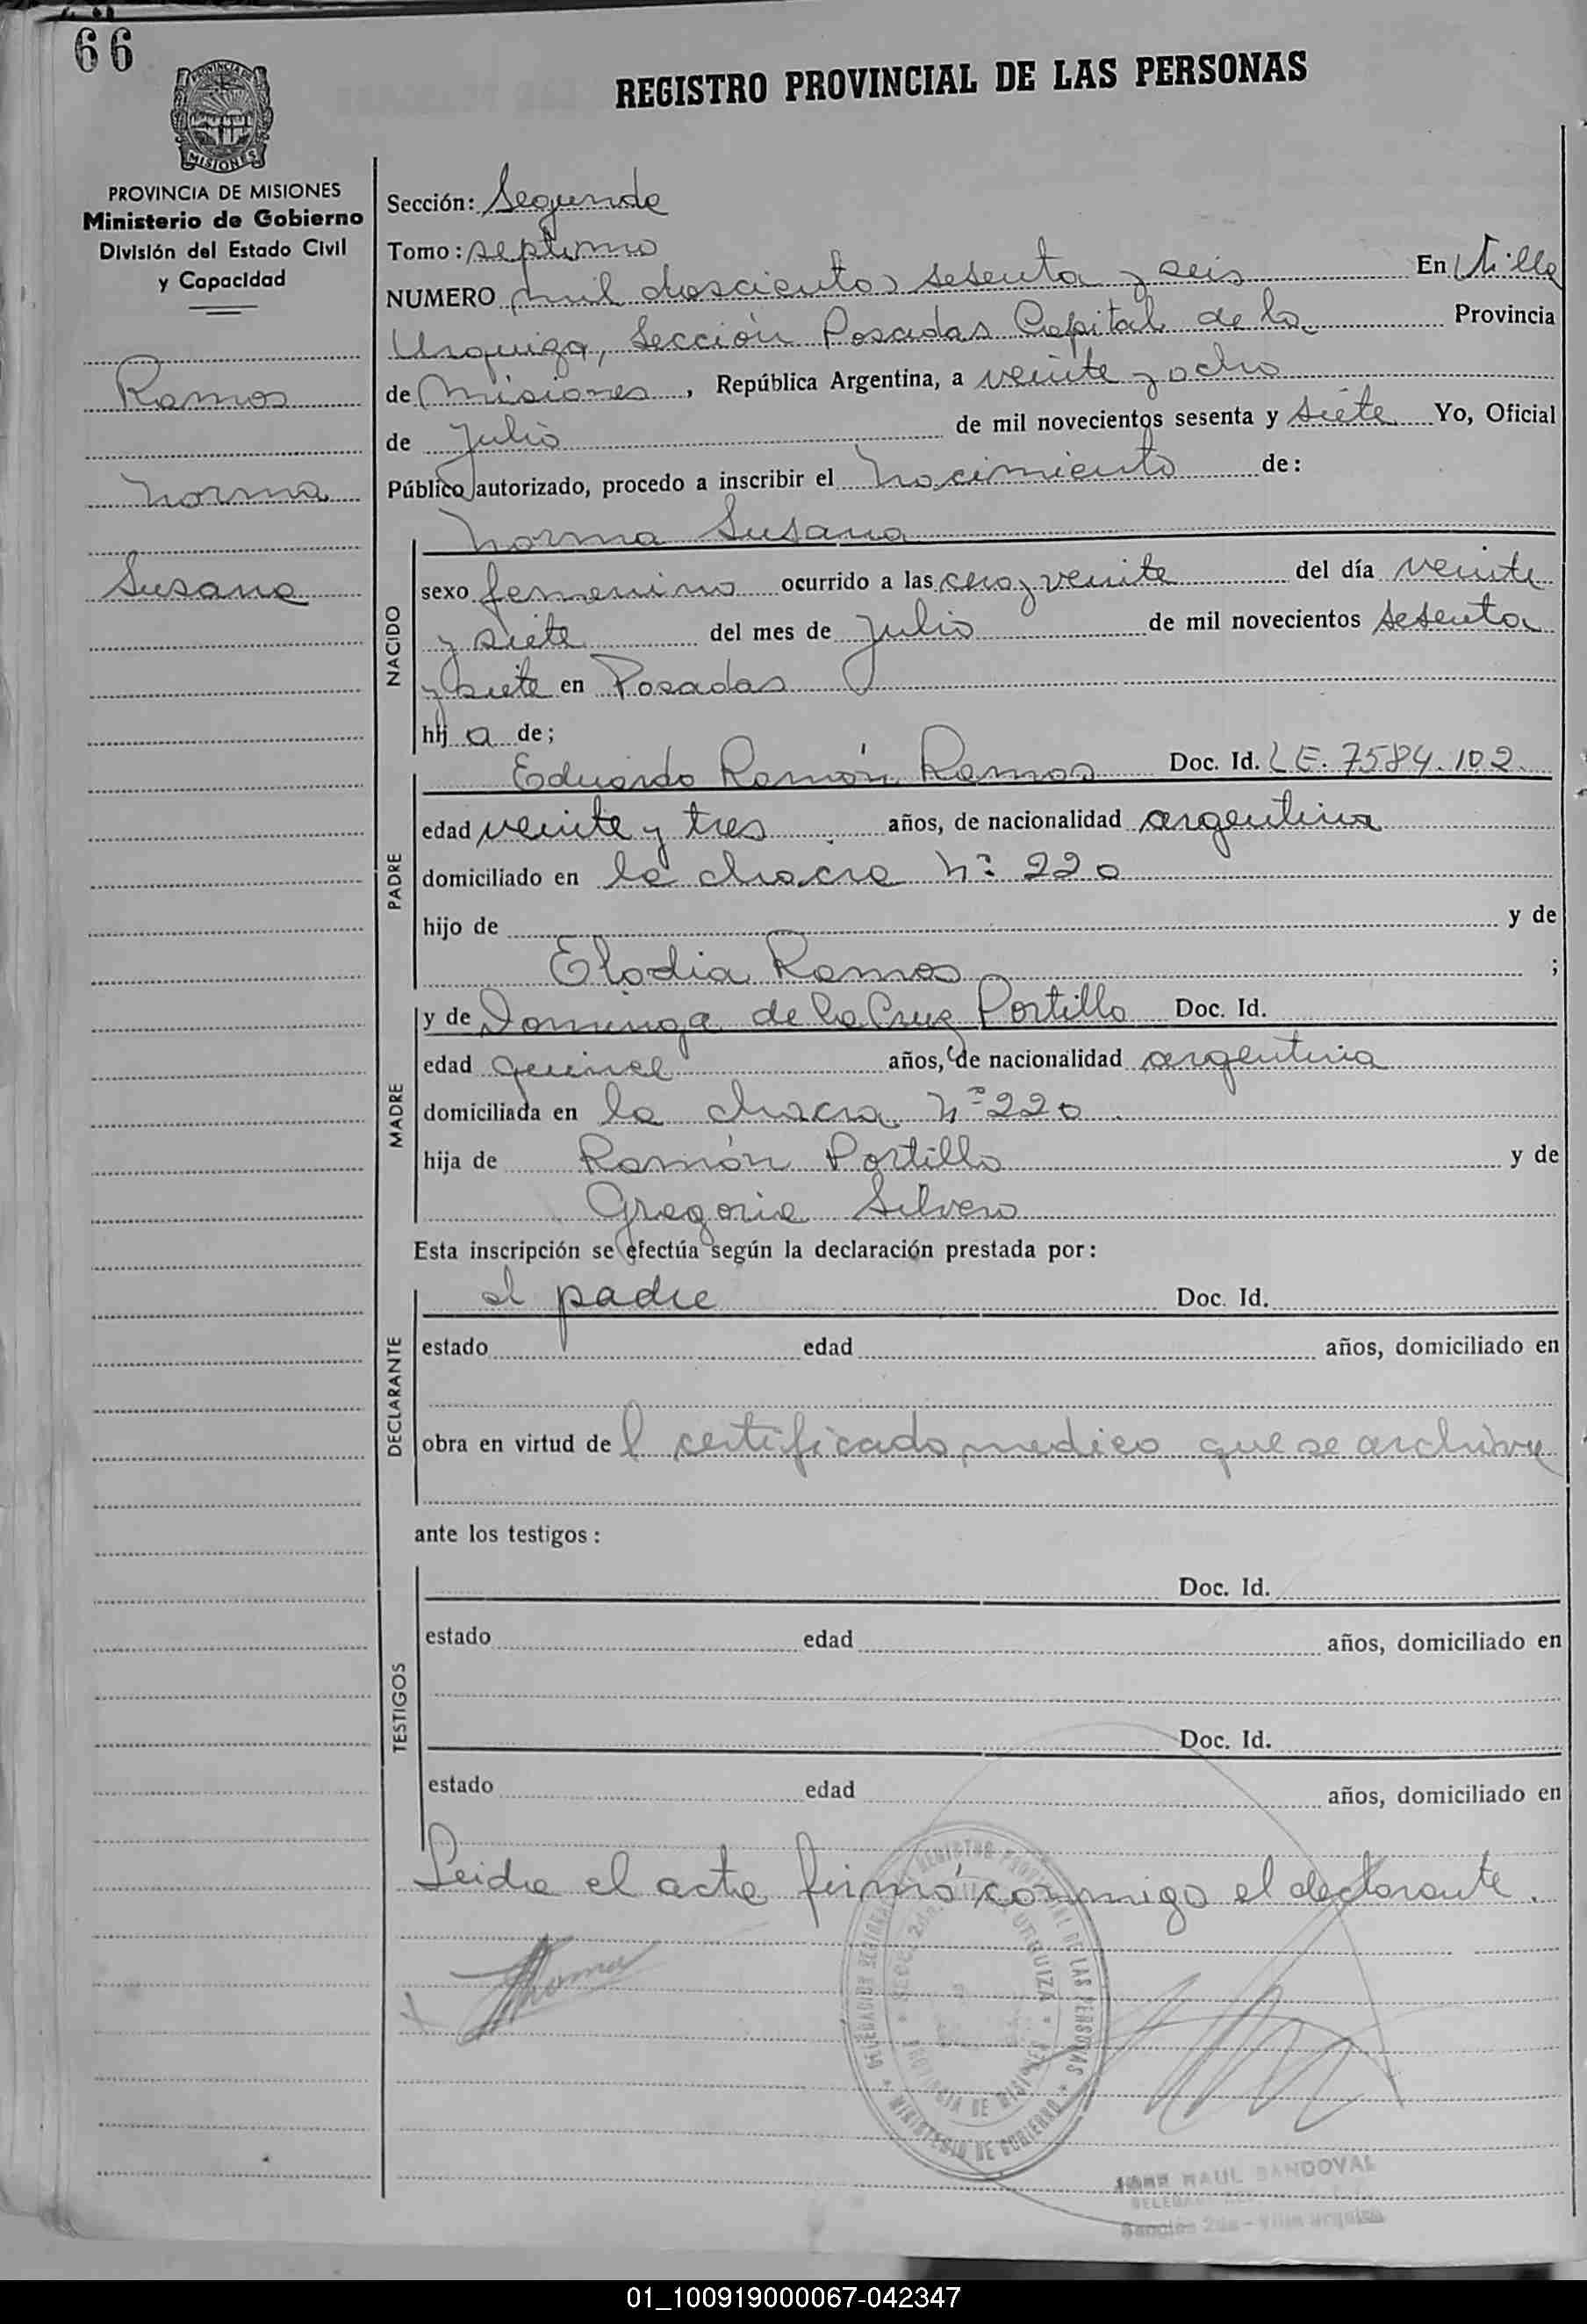 66
REGISTRO PROVINCIAL DE LAS PERSONAS
PROVINCIA DE
MISIONES
PROVINCIA DE MISIONES
Ministerio de Gobierno
División del Estado Civil
y Capacidad
Ramos
Norma
Susana
Sección: Segunda
Tomo: septimo
NUMERO mil doscientos sesenta y seis En Villa
Urquiza, Sección Posadas Capital de la Provincia
de Misiones, República Argentina, a veinte y ocho
de Julio de mil novecientos sesenta y siete Yo, Oficial
Público autorizado, procedo a inscribir el nacimiento de:
NACIDO
Norma Susana
sexo femenino ocurrido a las cero y veinte del día veinte
y siete del mes de Julio de mil novecientos sesenta
y siete en Posadas
hij a de;
PADRE
Eduardo Ramón Ramos Doc. Id. L E. 7584.102.
edad veinte y tres años, de nacionalidad argentina
domiciliado en la chacra Nº 220
hijo de y de
Elodia Ramos ;
MADRE
y de Dominga de la Cruz Portillo Doc. Id.
edad quince años, de nacionalidad argentina
domiciliada en la chacra Nº 220
hija de Ramón Portillo y de
Gregoria Silvero
Esta inscripción se efectúa según la declaración prestada por:
DECLARANTE
el padre Doc. Id.
estado edad años, domiciliado en
obra en virtud de l certificado medico que se archiva
ante los testigos:
TESTIGOS
Doc. Id.
estado edad años, domiciliado en
Doc. Id.
estado edad años, domiciliado en
Leida el acta firmó conmigo el declarante.
DELEGACION REGISTRO PROVINCIAL DE LAS PERSONAS
MINISTERIO DE GOBIERNO
SECC. 2da. URQUIZA
PROVINCIA DE MISIONES
RAUL SANDOVAL
Sección 2da - Villa Urquiza
01_100919000067-042347